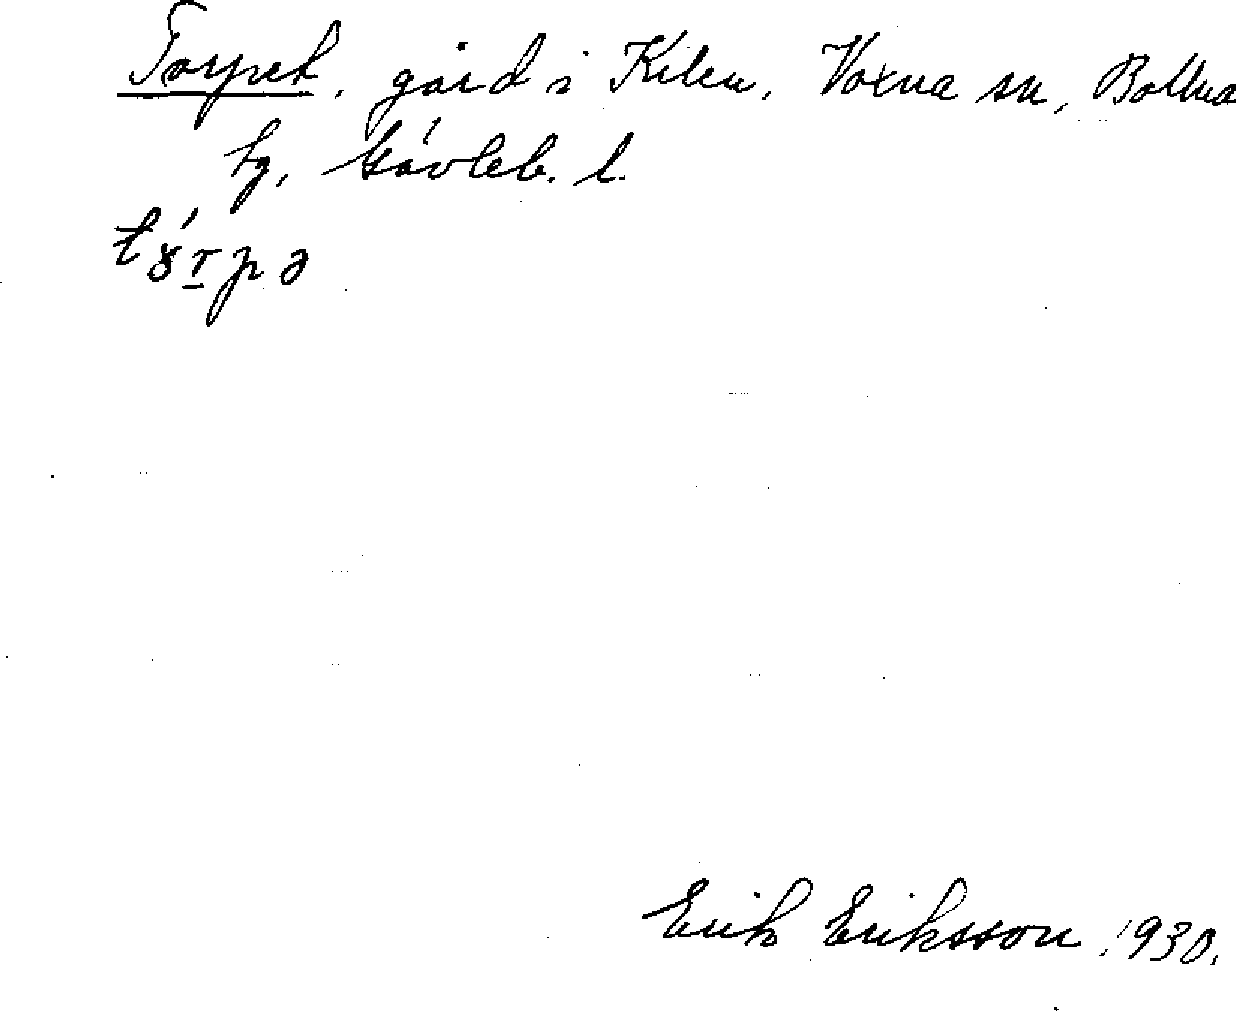 Torpet, gård i Kilen, Voxna sn, Bollnä
tg, Gävleb. l.
Erik Eriksson 1930.